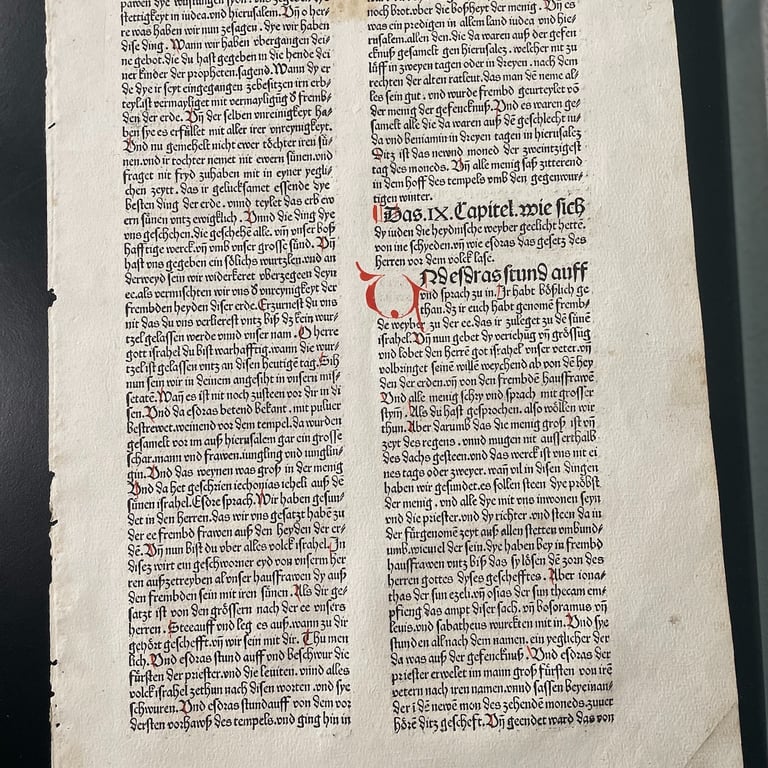 stettigkeyt in iudea.vnd hierusalem. Vñ o her-
re was haben wir nun zesagen. dye wir haben
dise ding. Wann wir haben vbergangen dei-
ne gebot.die du hast gegeben in die hende dei
ner kinder der propheten.sagend.Wann dy er-
de dye ir seyt eingegangen zebesitzen irn erb-
teyl.ist vermayliget mit vermayligūg ð fremb-
den der erde. Vñ der selben vnreinigkeyt ha-
ben sye es erfüllet mit aller irer vnreynigkeyt.
Vnd nu gemehelt nicht ewer töchter iren sü-
nen.vnd ir tochter nemet nit ewern sünen.vnd
fraget nit fryd zuhaben mit in eyner yegli-
chen zeytt. das ir gelücksamet essende dye
besten ding der erde. vnnd teylet das erb ew
ern sünen vntz ewigklich. Vnnd die ding dye
vns geschehen.die geschehē alle. vm̄ vnser boß
hafftige werck.vñ vmb vnser grosse sünd. Vñ
hast vns gegeben ein sölichs wurtzlen.vnd an
derweyd sein wir widerkeret vberzegeen deyn
ee.als vermischten wir vns ð vnreynigkeyt der
frembden heyden diser erde. Erzurnest du vns
nit das du vns verlierest vntz biß dz kein wur-
tzel gelassen werde vnnd vnser nam. O herre
gott israhel du bist warhafftig.wann die wur-
tzel ist gelassen vntz an disen heutigē tag. Sih
nun sein wir in deinem angesiht in vnsern mis-
setatē. Wañ es ist nit noch zusteen vor dir in di
sen. Vnd da esdras betend bekant. mit puluer
bestrewet.weinend vor dem tempel.da wurden
gesamelt vor im auß hierusalem gar ein grosse
schar.mann vnd frawen.iungling vnd iunglin-
gin. Vnd das weynen was groß in der menig
Vnd da het geschrien iechonias ieheli auß dē
sünen israhel. Esdre sprach. Wir haben gesun-
det in den herren. das wir vns gesatzt habē zu
der ee frembd frawen auß den heyden der er-
dē. Vñ nun bist du vber alles volck israhel. In
disez wirt ein geschworner eyd von vnserm her
ren außzetreyben al vnser haussfrawen dy auß
den frembden sein mit iren sünen. Als dir ge-
satzt ist von den grössern nach der ee vnsers
herren. Stee auff vnd leg es auß.wann zu dir
gehört geschefft.vñ wir sein mit dir. Thu men
lich. Vnd esdras stund auff vnd beschwur die
fürsten der priester.vnd die leuiten. vnnd alles
volck israhel zethun nach disen worten .vnd sye
schwuren. Vnd esdras stund auff von dem vor
dersten vorhawß des tempels.vnd ging hin in
noch boot.vber die boßheyt der menig. Vñ es
was ein predigen in allem land iudea vnd hie-
rusalem.allen den.die da waren auß der gefen
cknuß gesamelt gen hierusalez. welcher nit zu
lüff in zweyen tagen oder in dreyen. nach dem
rechten der alten ratleut.das man dē neme al-
les sein gut. vnd wurde frembd geurteylet vō
der menig der gefencknuß. Vnd es waren ge-
samelt alle die da waren auß dē geschlecht iu-
da vnd beniamin in dreyen tagen in hierusalez
Ditz ist das newnd moned der zweintzigest
tag des moneds. Vñ alle menig saß zitterend
in dem hoff des tempels vmb den gegenwur-
tigen winter.
Das.IX.Capitel.wie sich
dy iuden die heydnische weyber geelicht hettē.
von ine schyeden.vñ wie esdras das gesetz des
herren vor dem volck lase.
VNd esdras stund auff
vnd sprach zu in. Ir habt böslich ge
than. dz ir euch habt genomē fremb-
de weyber zu der ee.das ir zuleget zu dē sünē
israhel. Vñ nun gebet dy veriehūg vñ grössūg
vnd lober den herrē got israhel vnser veter.vñ
volbringet seinē willē weychend ab von dē hey
den der erden.vñ von den frembdē haussfrawē
Vnd alle menig schry vnd sprach mit grosser
stym̄. Als du hast gesprochen. also wöllen wir
thun. Aber darumb das die menig groß ist vñ
zeyt des regens. vnnd mugen nit ausserthalb
des dachs gesteen.vnd das werck ist vns nit ei
nes tags oder zweyer. wañ vil in disen dingen
haben wir gesundet.es sollen steen dye pröbst
der menig. vnd alle dye mit vns inwonen seyn
vnd die priester.vnd dy richter. vnd steen da in
der fürgenomē zeyt auß allen stetten vmbund-
umb.wieuil der sein.dye haben bey in frembd
haussfrawen vntz biß das sy lösen dē zorn des
herren gottes dyses geschefftes. Aber iona-
thas der sun ezeli.vñ osias der sun thecam em-
pfieng das ampt diser sach. vñ bosoramus vñ
leuis.vnd sabatheus wurckten mit in. Vnd sye
stunden all nach dem namen. ein yeglicher der
da was auß der gefencknuß. Vnd esdras der
priester erwelet im mann groß fürsten von irē
vetern nach iren namen.vnnd sassen beyeinan-
der i dē newē mon des zehendē moneds.zuuer
hörē ditz gescheft. Vñ geendet ward das von